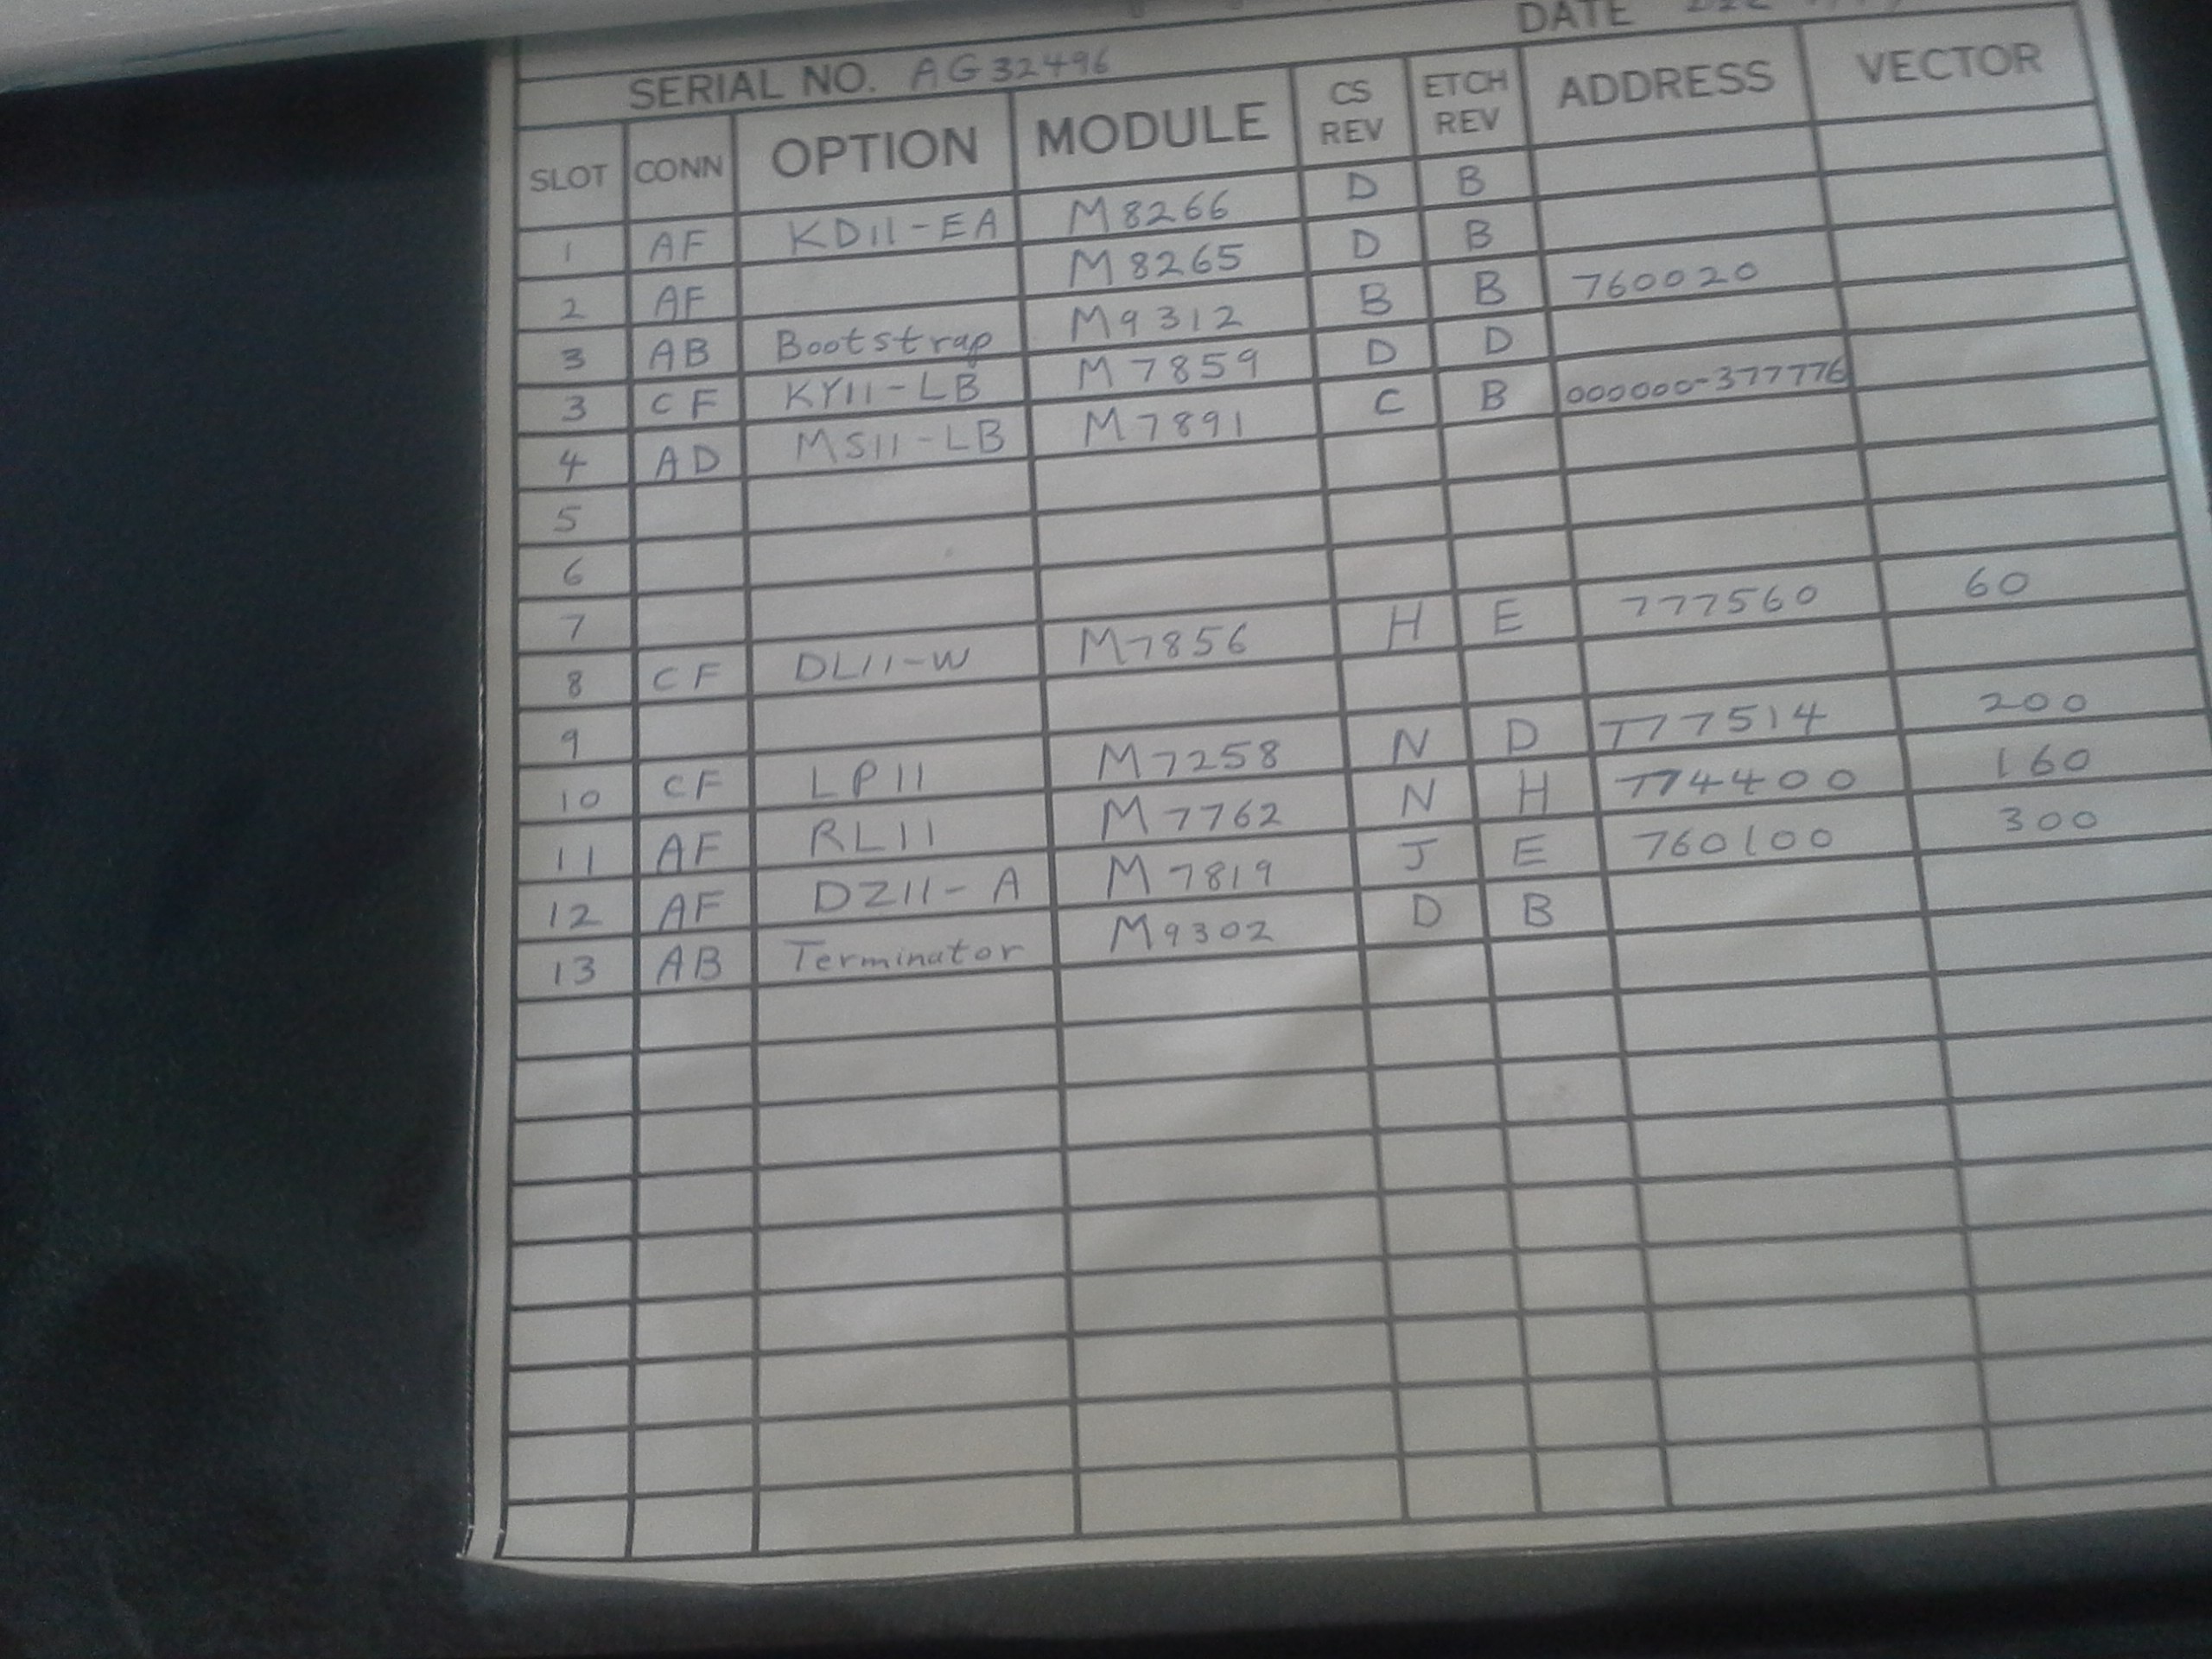 DATE
SERIAL NO. AG32496
SLOT CONN OPTION MODULE CS REV ETCH REV ADDRESS VECTOR
1 AF KD11-EA M8266 D B
2 AF M8265 D B
3 AB Bootstrap M9312 B B 760020
3 CF KY11-LB M7859 D D
4 AD MS11-LB M7891 C B 000000-377776
5
6
7
8 CF DL11-W M7856 H E 777560 60
9
10 CF LP11 M7258 N D 777514 200
11 AF RL11 M7762 N H 774400 160
12 AF DZ11-A M7819 J E 760100 300
13 AB Terminator M9302 D B